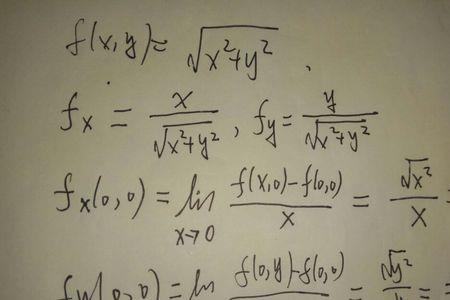 f(x,y)=√(x²+y²),
f_x = x/√(x²+y²), f_y = y/√(x²+y²)
f_x(0,0) = lim_{x→0} (f(x,0)-f(0,0))/x = √x²/x =
f_y(0,0) = lim (f(0,y)-f(0,0)) = √y² =